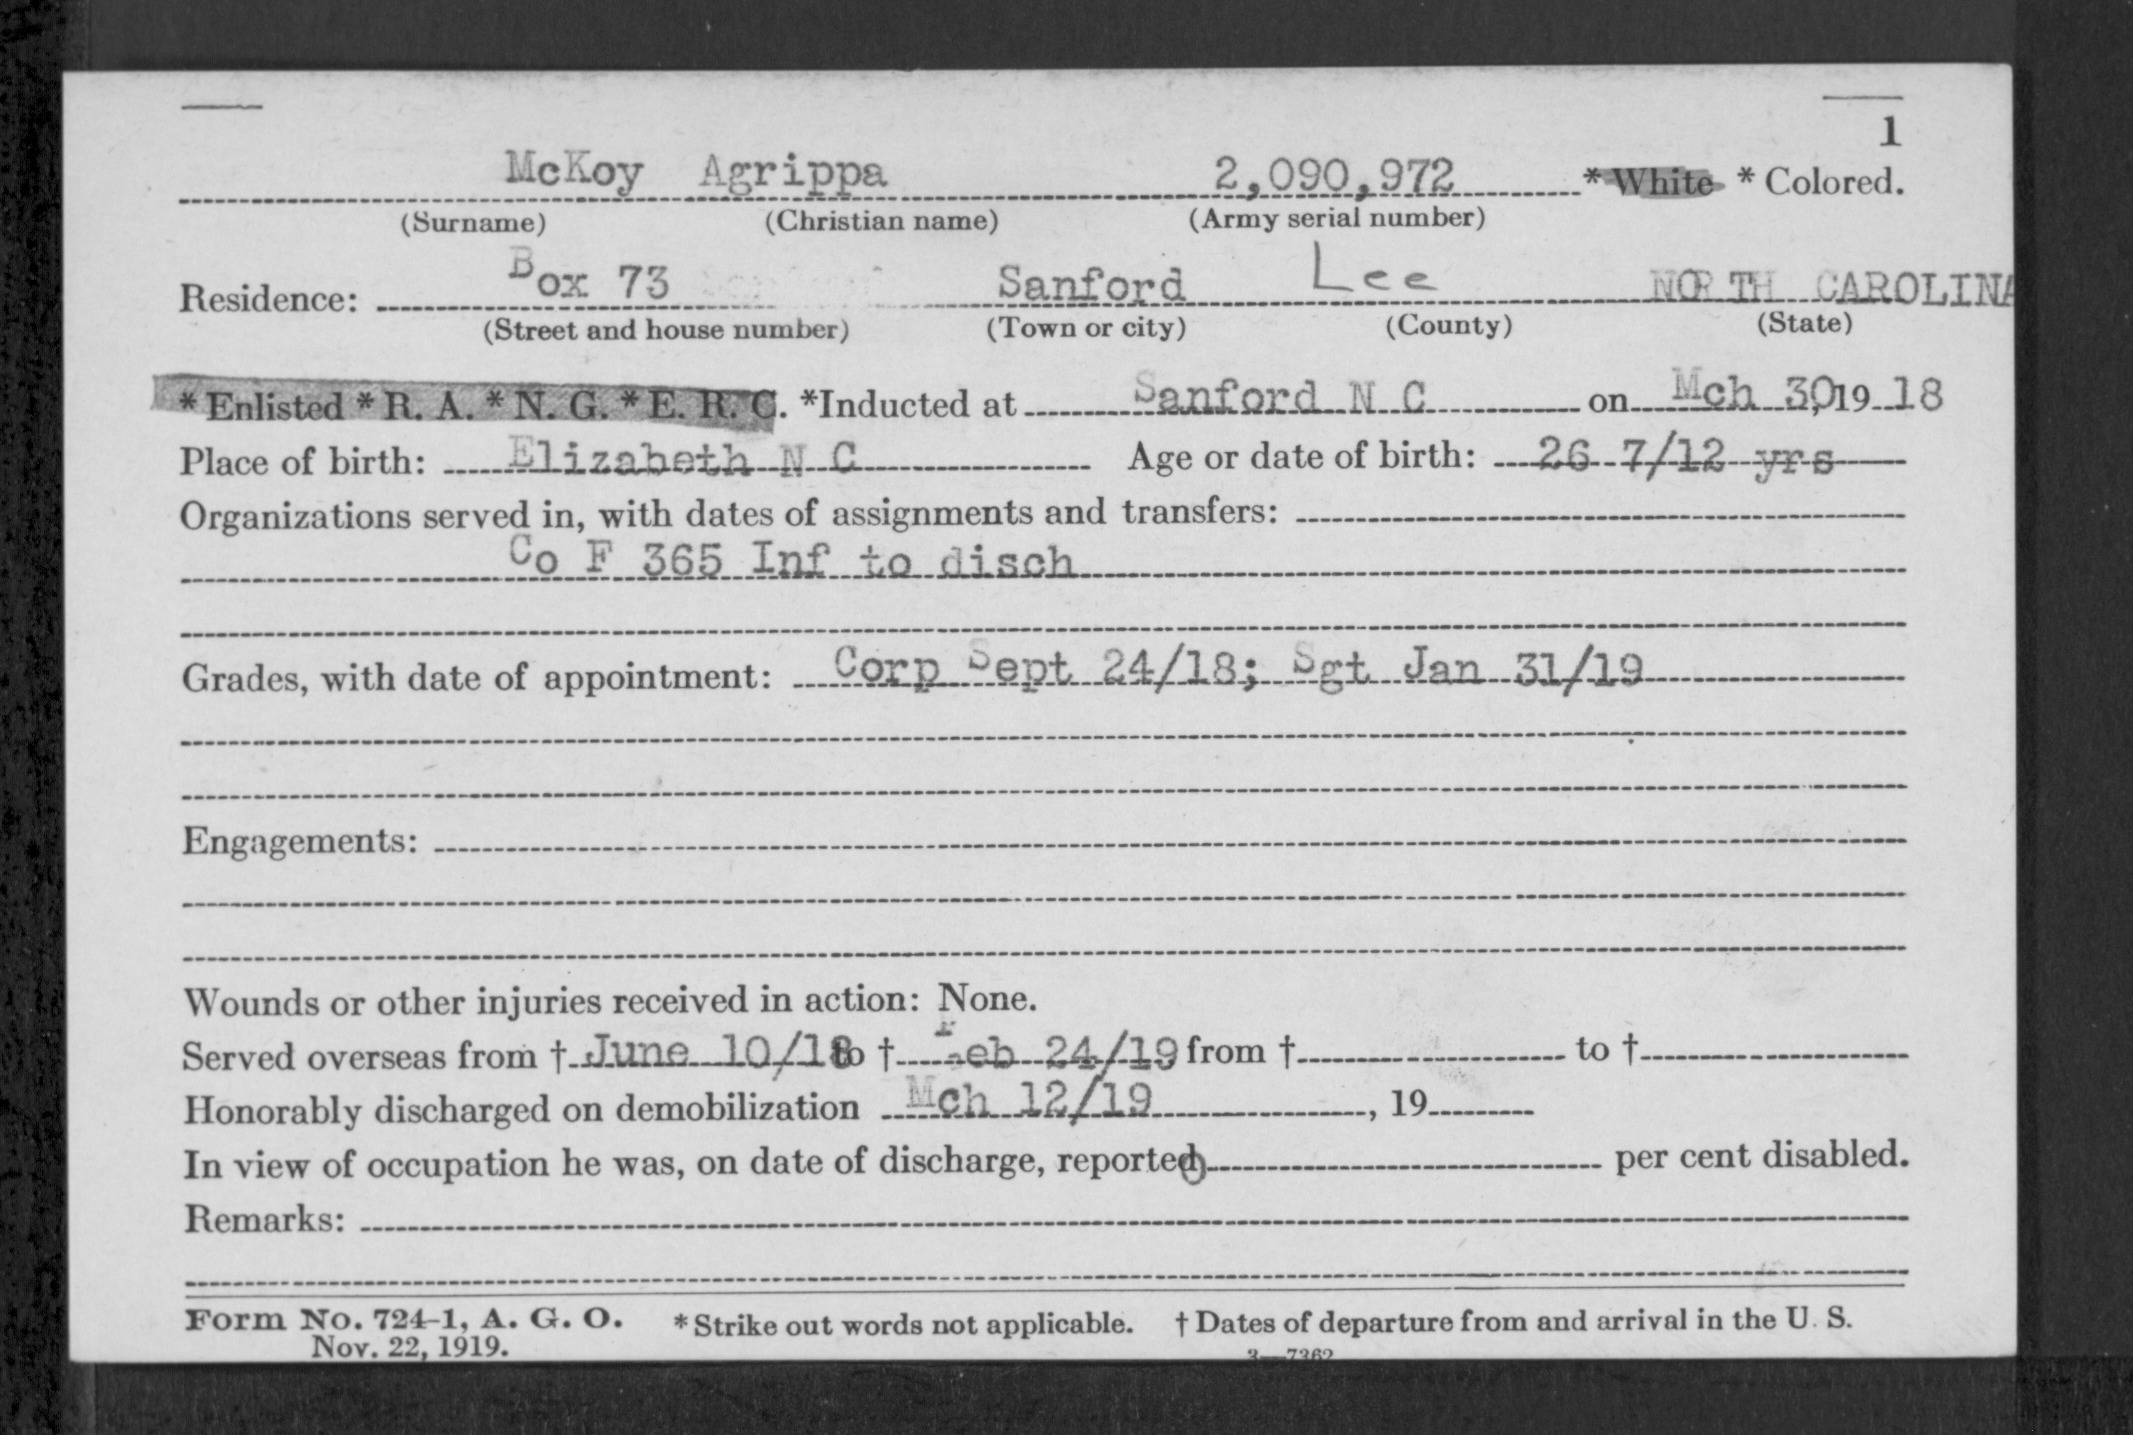 1
McKoy Agrippa 2,090,972 * White * Colored.
(Surname) (Christian name) (Army serial number)
Residence: Box 73 Sanford Lee NORTH CAROLINA
(Street and house number) (Town or city) (County) (State)
* Enlisted * R. A. * N. G. * E. R. C. *Inducted at Sanford N C on Mch 30, 19 18
Place of birth: Elizabeth N C Age or date of birth: 26 7/12 yrs
Organizations served in, with dates of assignments and transfers:
Co F 365 Inf to disch
Grades, with date of appointment: Corp Sept 24/18; Sgt Jan 31/19
Engagements:
Wounds or other injuries received in action: None.
Served overseas from † June 10/18 to † Feb 24/19 from † to †
Honorably discharged on demobilization Mch 12/19 , 19
In view of occupation he was, on date of discharge, reported 0 per cent disabled.
Remarks:
Form No. 724-1, A. G. O. * Strike out words not applicable. † Dates of departure from and arrival in the U. S.
Nov. 22, 1919. 3—7362